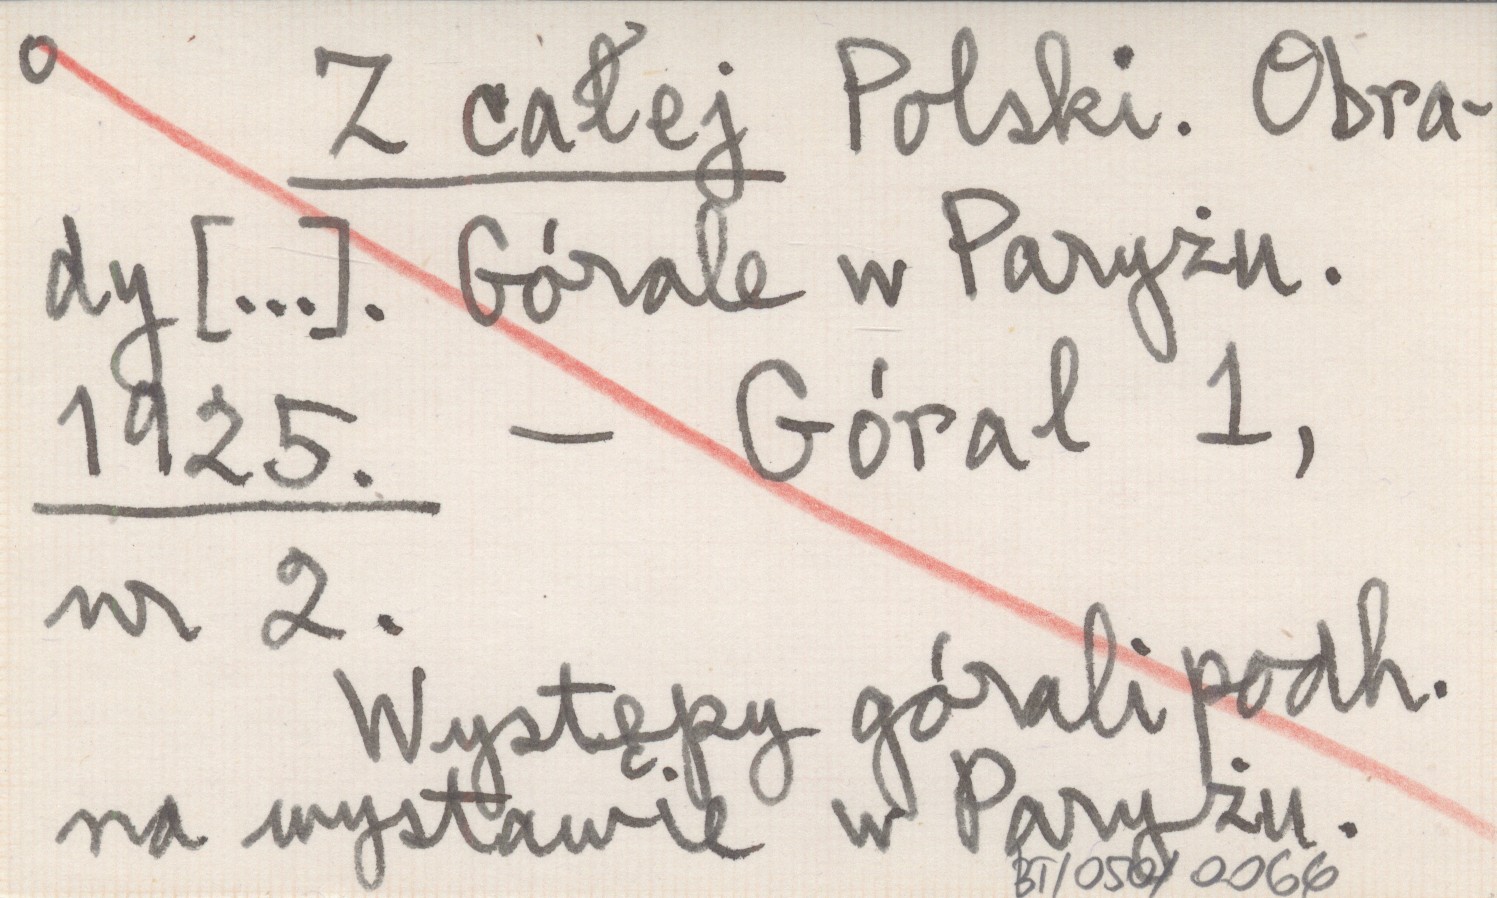 o Z całej Polski. Obra-
dy [...]. Górale w Paryżu.
1925. — Góral 1,
nr 2.
Występy górali podh.
na wystawie w Paryżu.
BT/050/0066